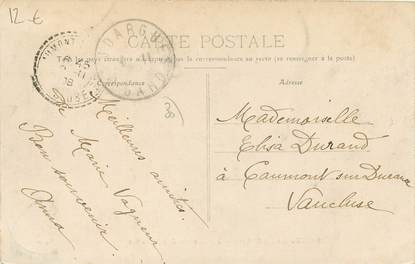 12 €
CARTE POSTALE
Tous les pays étrangers n'acceptent pas la correspondance au recto (se renseigner à la poste)
Correspondance
Adresse
38
Meilleures amitiés.
de Marie Vagneur
Bon souvenir.
Anna
Mademoiselle
Elisa Durand
à Caumont sur Durance
Vaucluse